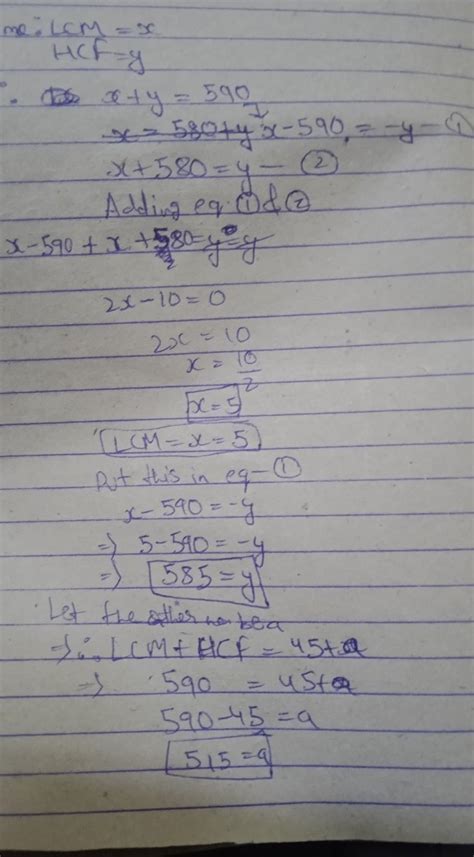 me: LCM = x
HCF = y
∴ x+y = 590
x = 580+y x-590 = -y - ①
x+580 = y - ②
Adding eq ① & ②
x-590 + x + 580 = y - y
2x-10 = 0
2x = 10
x = 10/2
x=5
LCM = x = 5
Put this in eq - ①
x-590 = -y
⇒ 5-590 = -y
⇒ 585 = y
Let the other no be a
⇒ ∴ LCM + HCF = 45+a
⇒ 590 = 45+a
590-45 = a
515 = a